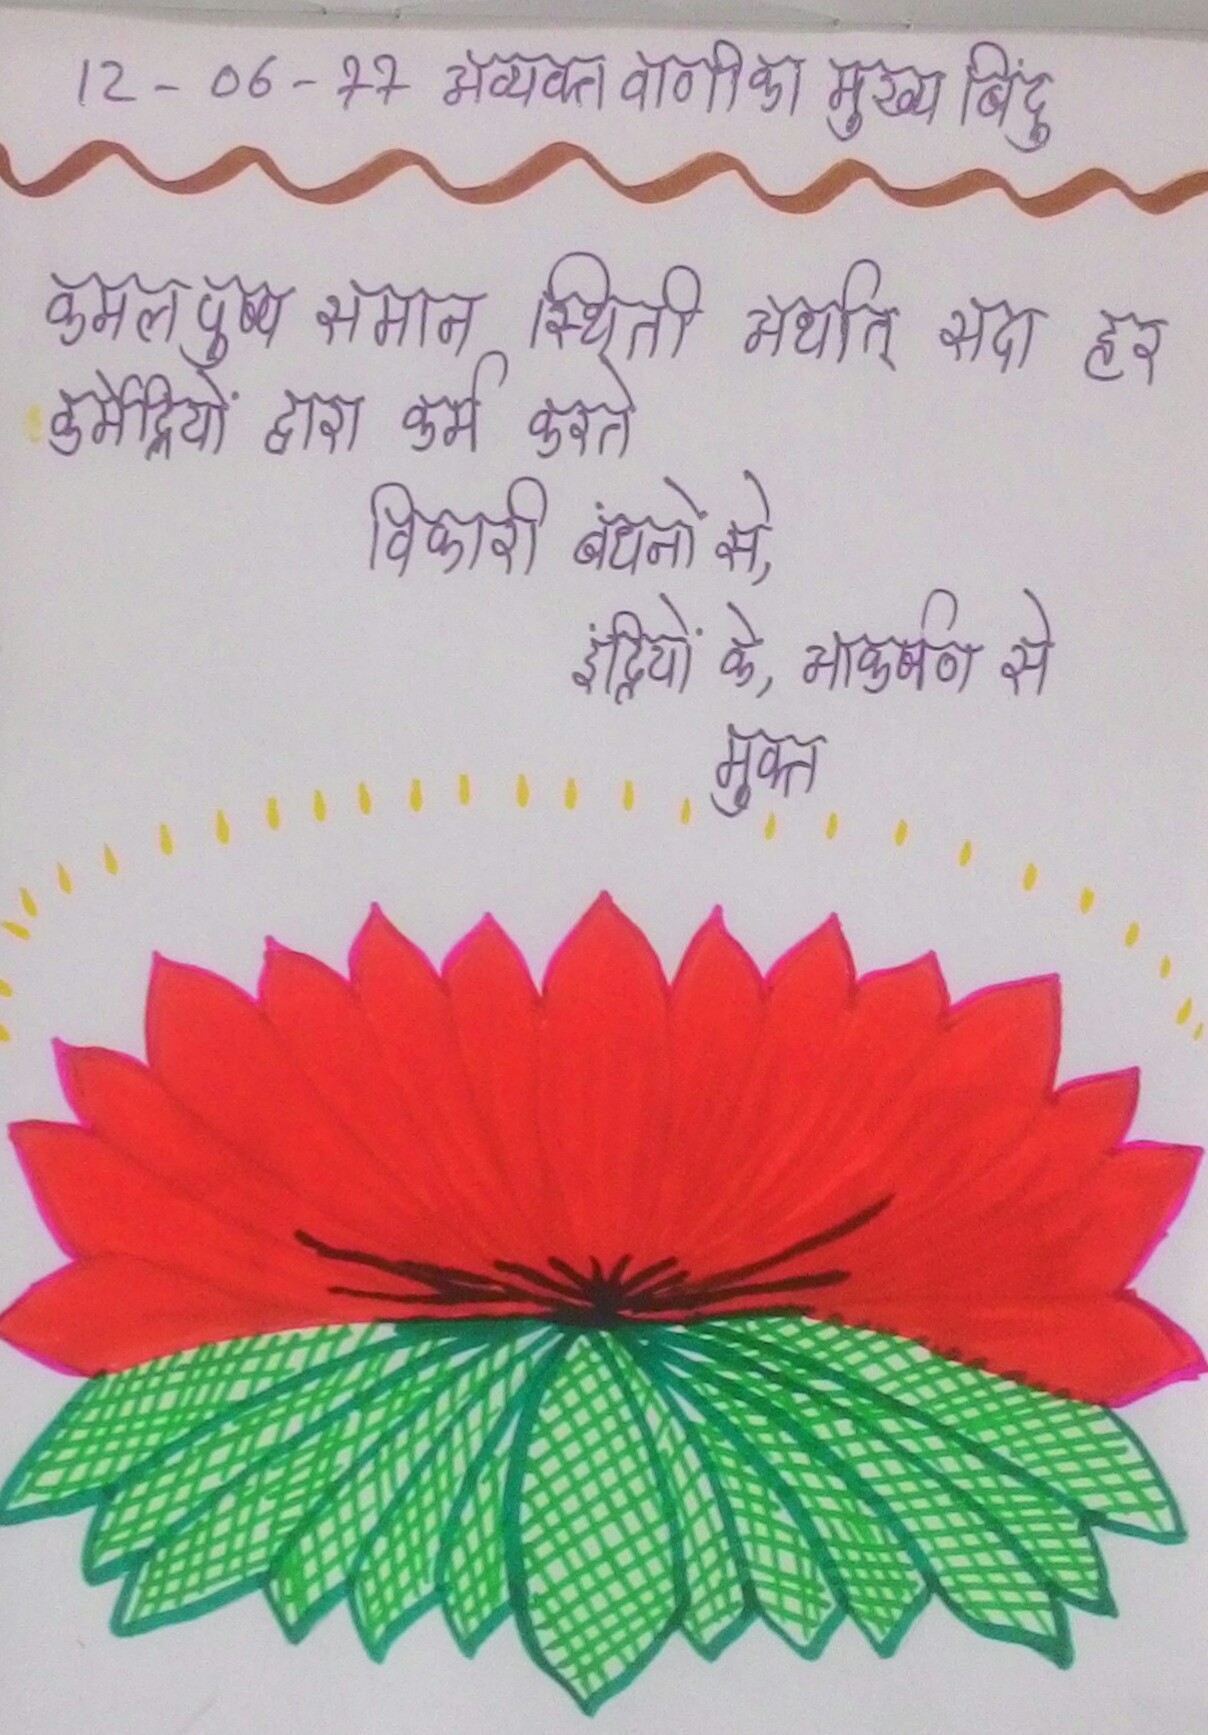 12 - 06 - 77 अव्यक्त वाणी का मुख्य बिंदु
कमल पुष्प समान स्थिती अर्थात् सदा हर
कर्मेंद्रियों द्वारा कर्म करते
विकारी बंधनों से,
इंद्रियों के, आकर्षण से
मुक्त